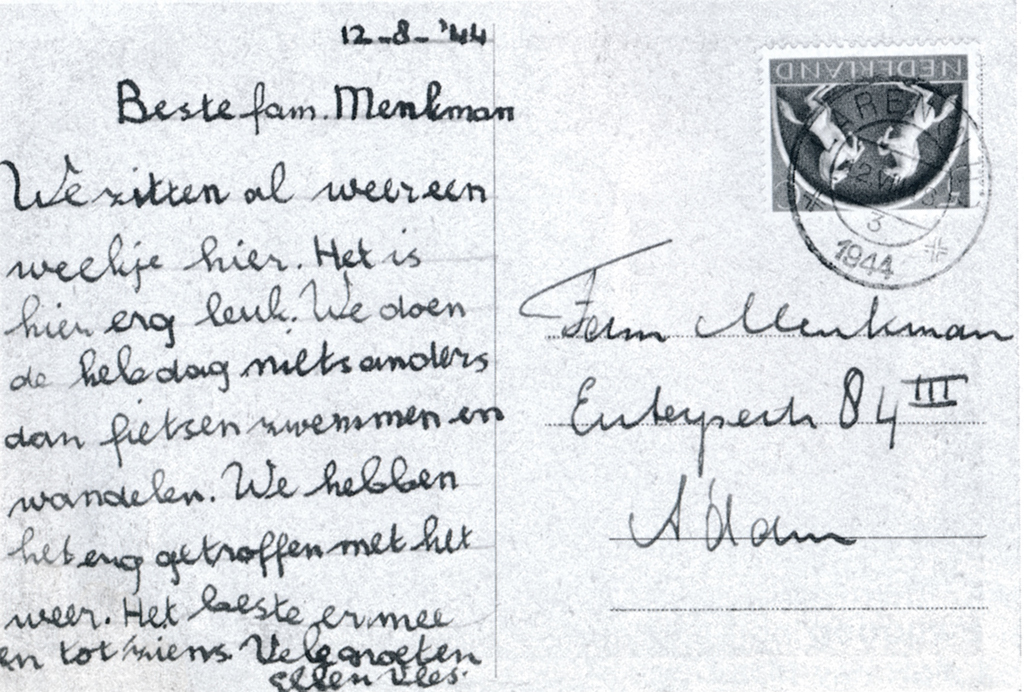 12-8-'44
Beste fam. Menkman
We zitten al weer een
weekje hier. Het is
hier erg leuk. We doen
de hele dag niets anders
dan fietsen zwemmen en
wandelen. We hebben
het erg getroffen met het
weer. Het beste er mee
en tot ziens. Vele groeten
Ellen Vles.
NEDERLAND
3
1944
Fam Menkman
Euterpestr 84 III
A'dam